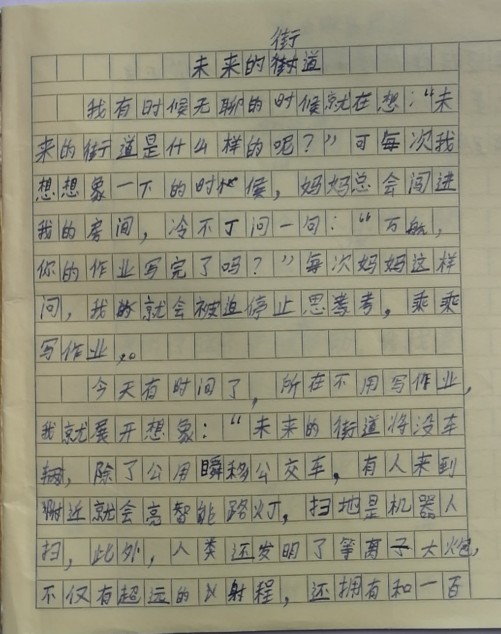 街
未来的街道
我有时候无聊的时候就在想：“未
来的街道是什么样的呢？”可每次我
想想象一下的时候，妈妈总会闯进
我的房间，冷不丁问一句：“万航，
你的作业写完了吗？”每次妈妈这样
问，我就会被迫停止思考，乘乘
写作业。
今天有时间了，所在不用写作业，
我就展开想象：“未来的街道将没车
辆，除了公用瞬移公交车，有人来到
附近就会高智能路灯，扫地是机器人
扫，此外，人类还发明了等离子大炮，
不仅有超远的射程，还拥有和一百